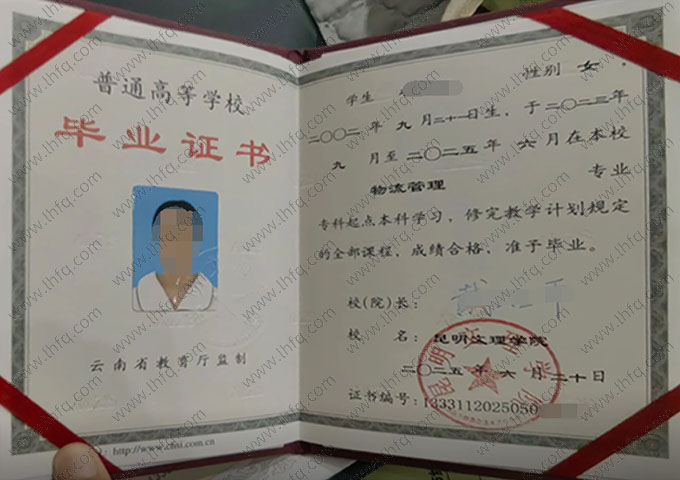 普通高等学校
毕业证书
云南省教育厅监制
http://www.chsi.com.cn
学生 性别 女
二〇〇二年九月二十一日生,于二〇二三年
九月至二〇二五年六月在本校
物流管理 专业
专科起点本科学习,修完教学计划规定
的全部课程,成绩合格,准予毕业。
校(院)长:
校 名: 昆明文理学院
二〇二五年六月二十日
证书编号:1333112025050
www.lhfq.com